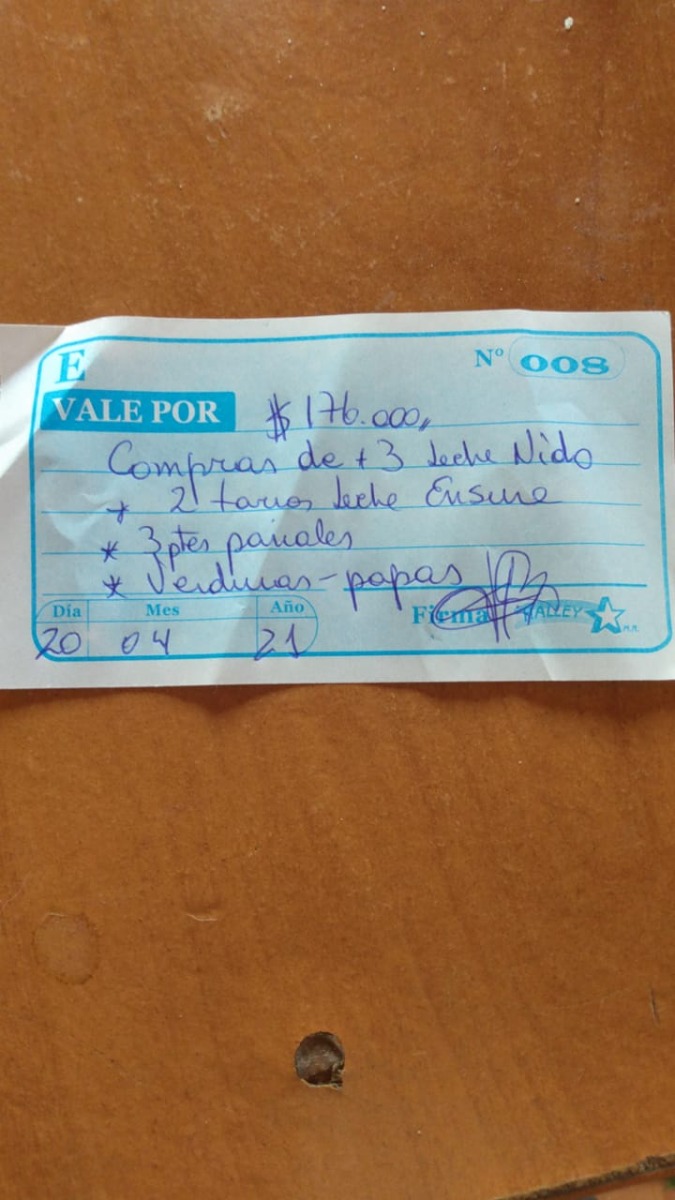 E
Nº 008
VALE POR $ 176.000,
Compras de + 3 leche Nido
* 2 tarros leche Ensure
* 3 ptes pañales
* Verduras - papas
Día Mes Año
20 04 21
Firma HALLEY M.R.